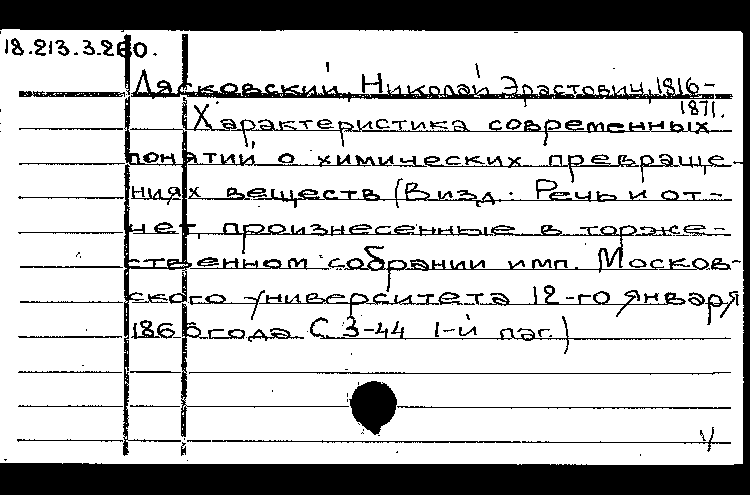 18.213.3.260.
Лясковский, Николай Эрастович, 1816-
1871.
Характеристика современных
понятий о химических превраще-
ниях веществ (В изд.: Речь и от-
чет, произнесенные в торже-
ственном собрании имп. Москов-
ского университета 12-го января
1868 года С. 3-44 1-й паг.)